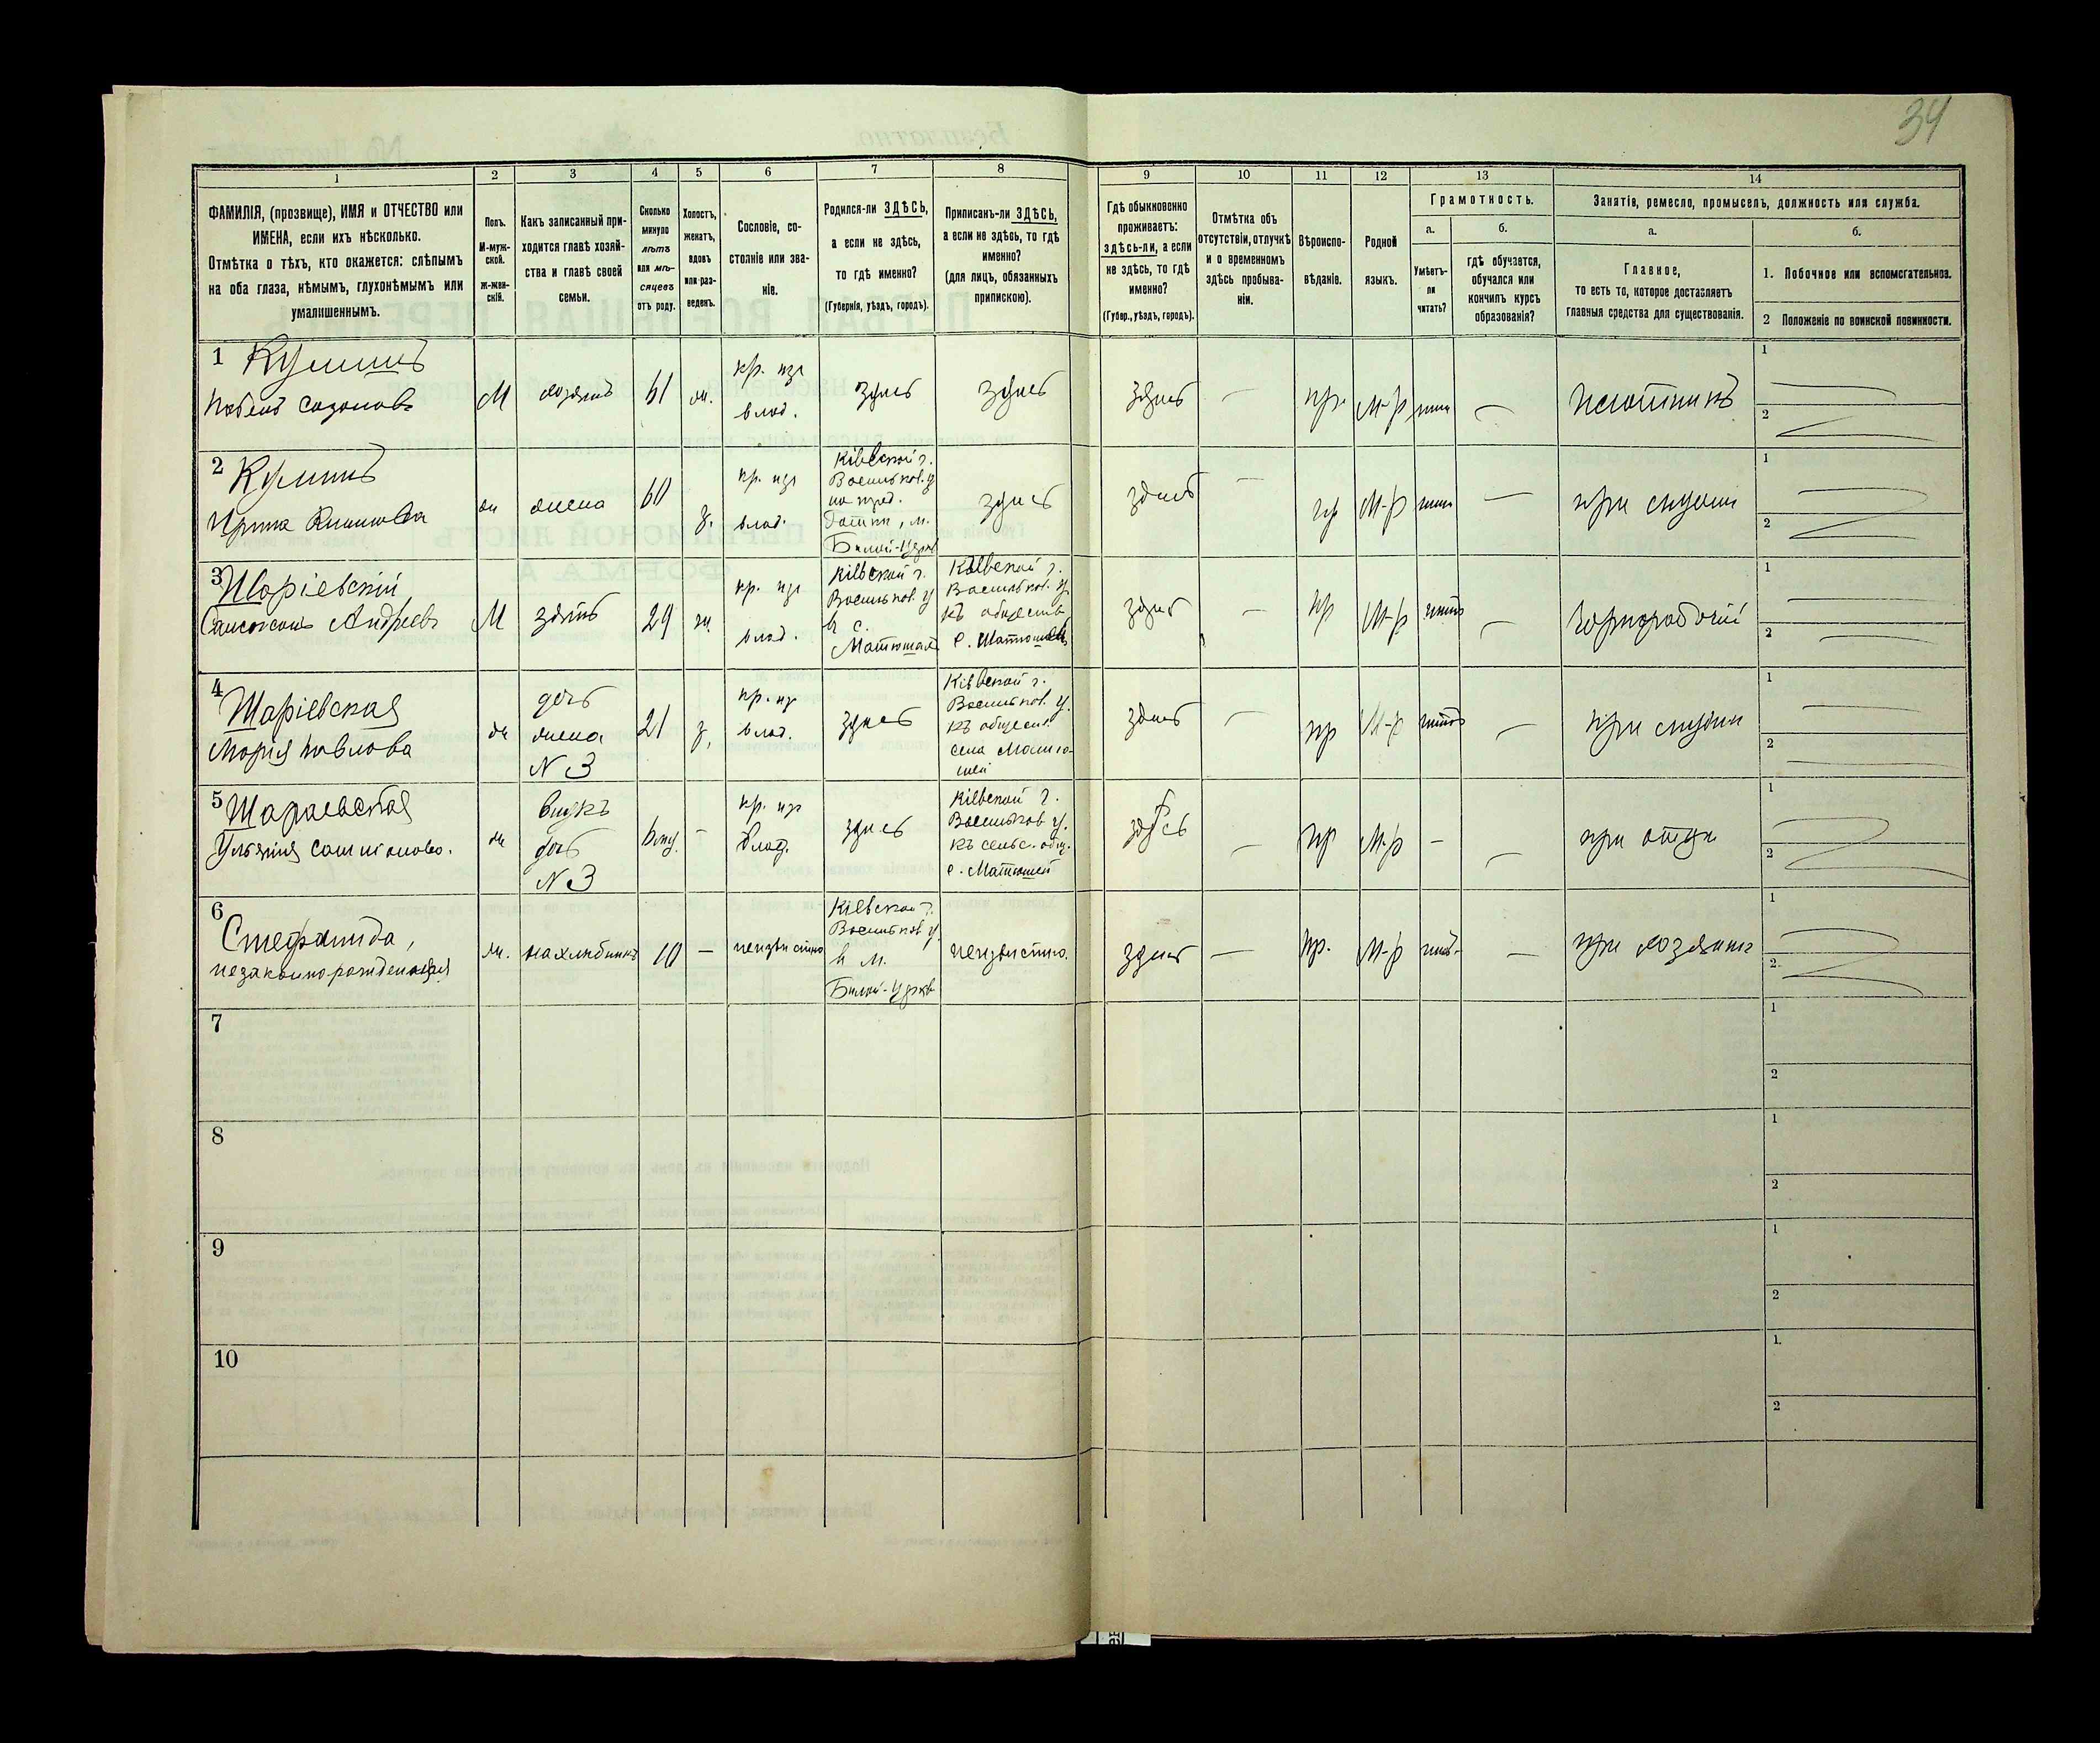 34
1
2
3
4
5
6
7
8
9
10
11
12
13
14
ФАМИЛІЯ, (прозвище), ИМЯ и ОТЧЕСТВО или
ИМЕНА, если ихъ нѣсколько.
Отмѣтка о тѣхъ, кто окажется: слѣпымъ
на оба глаза, нѣмымъ, глухонѣмымъ или
умалишеннымъ.
Полъ.
М-муж-
ской.
Ж-жен-
скій.
Какъ записанный при-
ходится главѣ хозяй-
ства и главѣ своей
семьи.
Сколько
минуло
лѣтъ
или мѣ-
сяцевъ
отъ роду.
Холостъ,
женатъ,
вдовъ
или раз-
веденъ.
Сословіе, со-
стояніе или зва-
ніе.
Родился-ли ЗДѢСЬ,
а если не здѣсь,
то гдѣ именно?
(Губернія, уѣздъ, городъ).
Приписанъ-ли ЗДѢСЬ,
а если не здѣсь, то гдѣ
именно?
(для лицъ, обязанныхъ
припискою).
Гдѣ обыкновенно
проживаетъ:
здѣсь-ли, а если
не здѣсь, то гдѣ
именно?
(Губер., уѣздъ, городъ).
Отмѣтка объ
отсутствіи, отлучкѣ
и о временномъ
здѣсь пребыва-
ніи.
Вѣроиспо-
вѣданіе.
Родной
языкъ.
Грамотность.
а.
Умѣетъ-
ли
читать?
б.
гдѣ обучается,
обучался или
кончилъ курсъ
образованія?
Занятія, ремесло, промыселъ, должность или служба.
а.
Главное,
то есть то, которое доставляетъ
главныя средства для существованія.
б.
1. Побочное или вспомогательное.
2 Положеніе по воинской повинности.
1
М
61
кр. изъ
влад.
здѣсь
здѣсь
здѣсь
—
пр.
М-р
—
1
2
2
жена
60
кр. изъ
влад.
Кіевской г.
Васильков. у.
м.
Бѣлой-Церкв
здѣсь
здѣсь
—
пр
М-р
—
1
2
3
Шаріевскій,
Андреевъ
М
зять
29
ж.
кр. изъ
влад.
Кіевской г.
Васильков. у
в с.
Кіевской г.
Васильков. у.
къ обществ.
здѣсь
—
пр
М-р
—
Чернорабочій
1
2
4
Шаріевская
Марія Павлова
дочь
жена
N 3
21
з.
кр. из
влад.
здѣсь
Кіевской г.
Васильков. у.
къ общест.
села Матю-
шей
здѣсь
—
пр
М-р
—
1
2
5
Шараевская
внукъ
дочь
N 3
—
кр. из
влад.
здѣсь
Кіевской г.
Васильков у.
къ сельс. общ.
с. Матюшей
здѣсь
—
пр
М-р
—
—
при отцѣ
1
2
6
незаконнорожденная
10
—
неизвѣстно
Кіевской г.
Васильков у.
в м.
Бѣлой-Церкв
неизвѣстно.
здѣсь
—
пр.
М-р
—
при хозяинѣ
1
2
7
1
2
8
1
2
9
1
2
10
1.
2